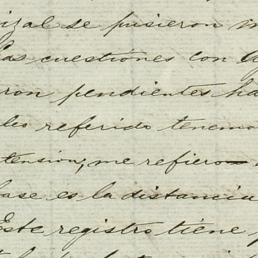 izal se pusieron m
las cuestiones con
ron pendientes ha
les referido tenemo
tension, me refiero
base es la distancia
Este registro tiene